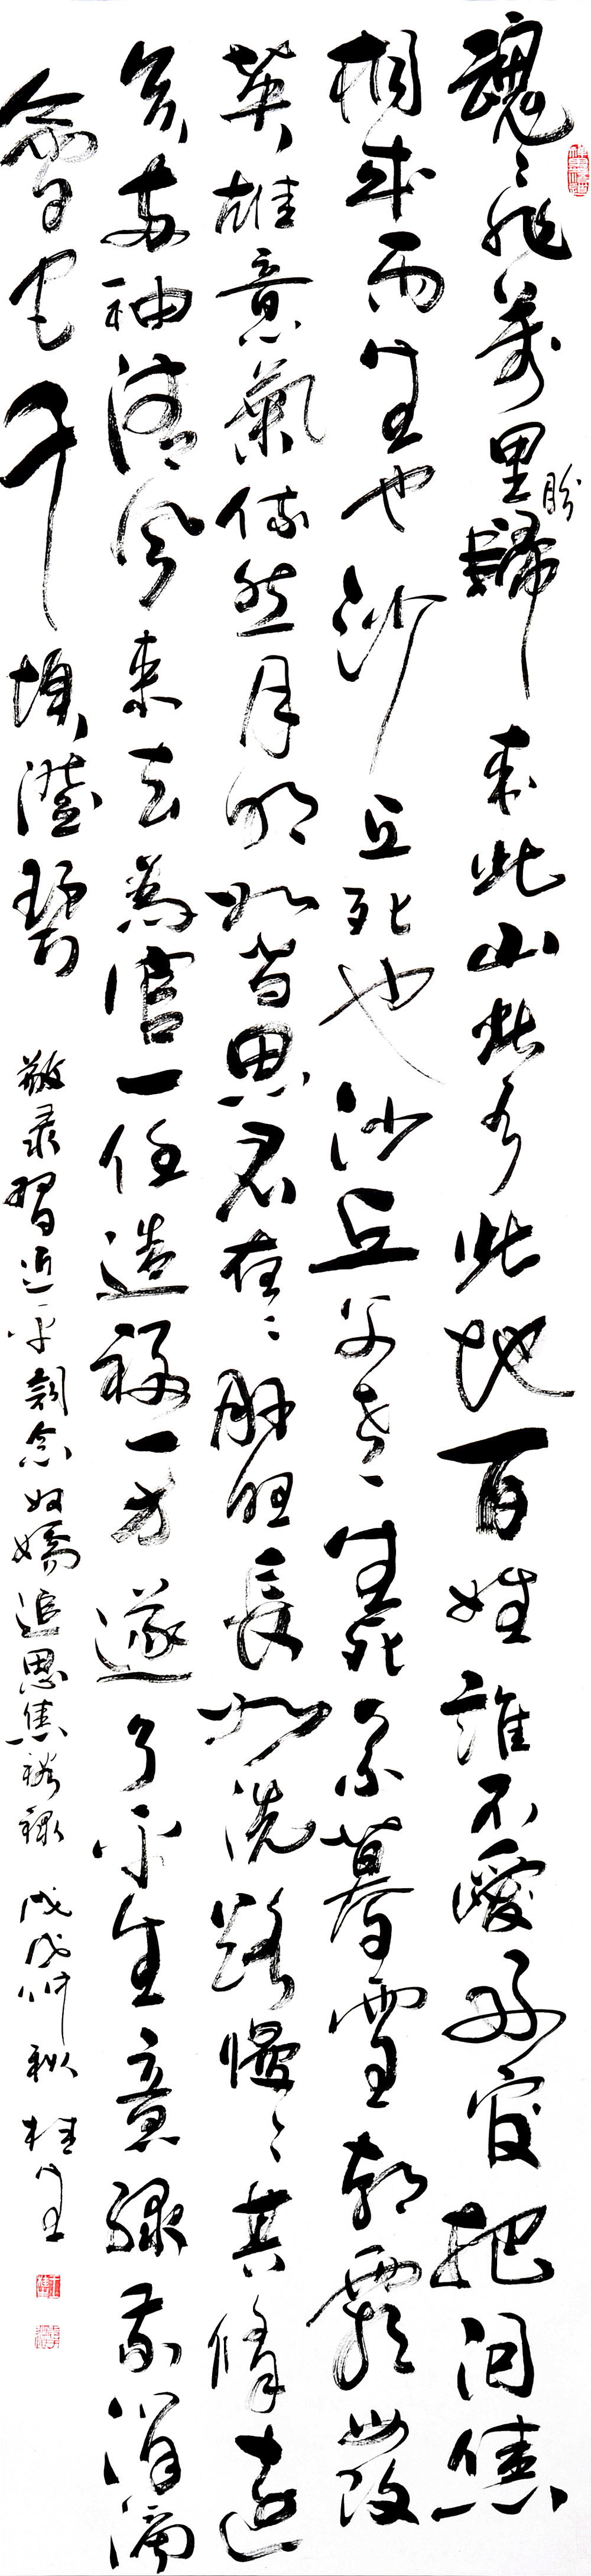 魂飛萬里盼歸来此山此水此地百姓誰不愛好官把泪焦
桐成雨生也沙丘死也沙丘父老生死系暮雪朝霜毋改
英雄意氣依然月明如昔思君夜〻肝胆長如洗路慢〻其修遠
矣兩袖清风来去為官一任造福一方遂了平生意綠我涓滴
會它千頃澄碧
敬录習近平詞念奴嬌追思焦裕禄 戊戌仲秋 桂生